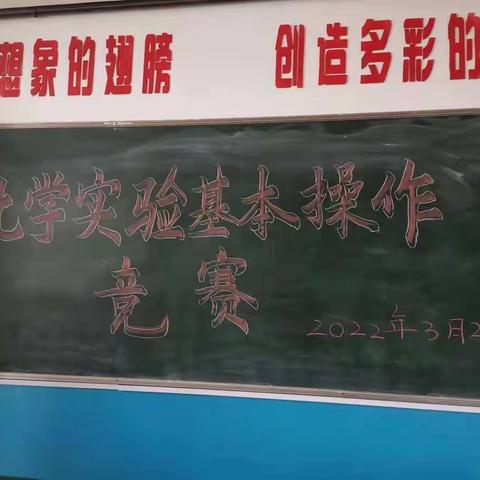 想象的翅膀 创造多彩的
化学实验基本操作
竞赛
2022年3月2